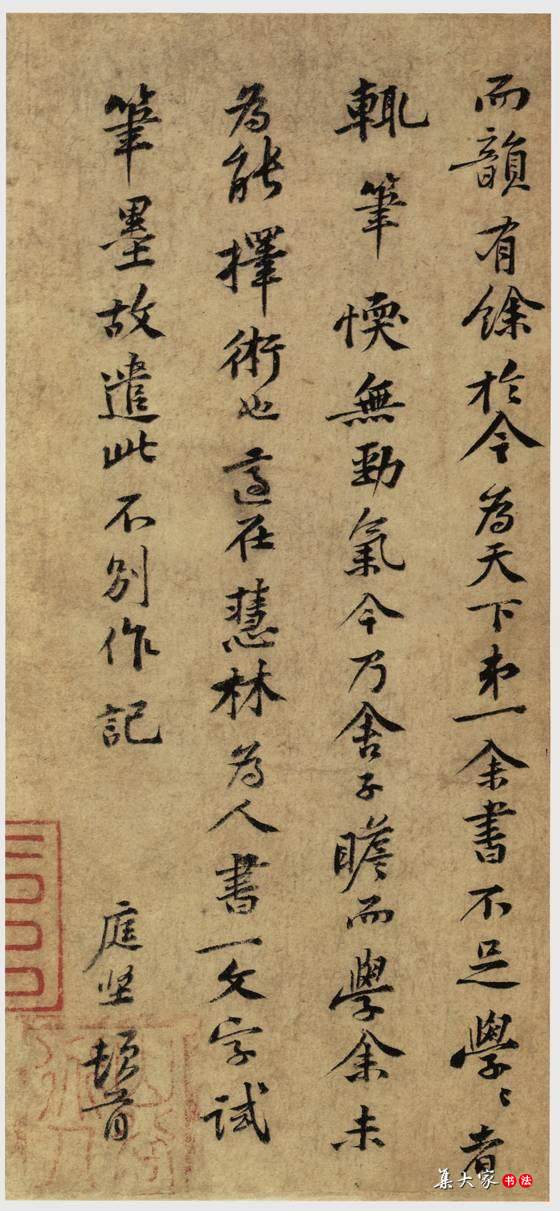 而韻有餘於今為天下第一余書不足學學者
輒筆愞無勁氣今乃舍子瞻而學余未
為能擇術也適在慧林為人書一文字試
筆墨故遣此不別作記
庭堅頓首
集大家书法